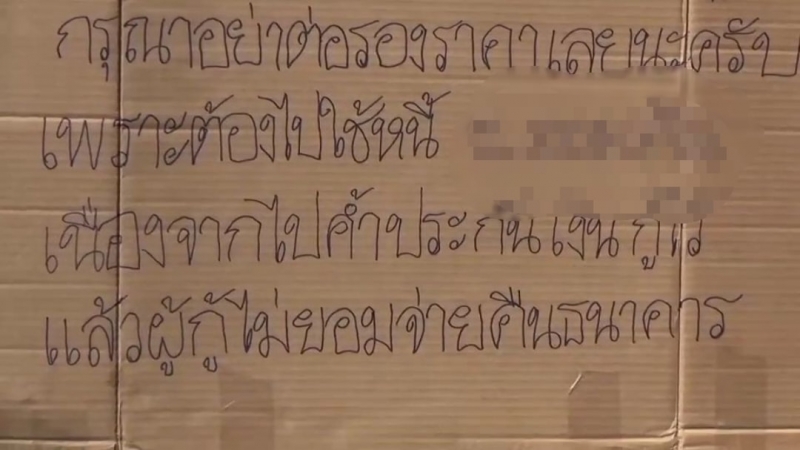 กรุณาอย่าต่อรองราคาเลยนะครับ
เพราะต้องไปใช้หนี้
เนื่องจากไปค้ำประกันเงินกู้
แล้วผู้กู้ไม่ยอมจ่ายคืนธนาคาร